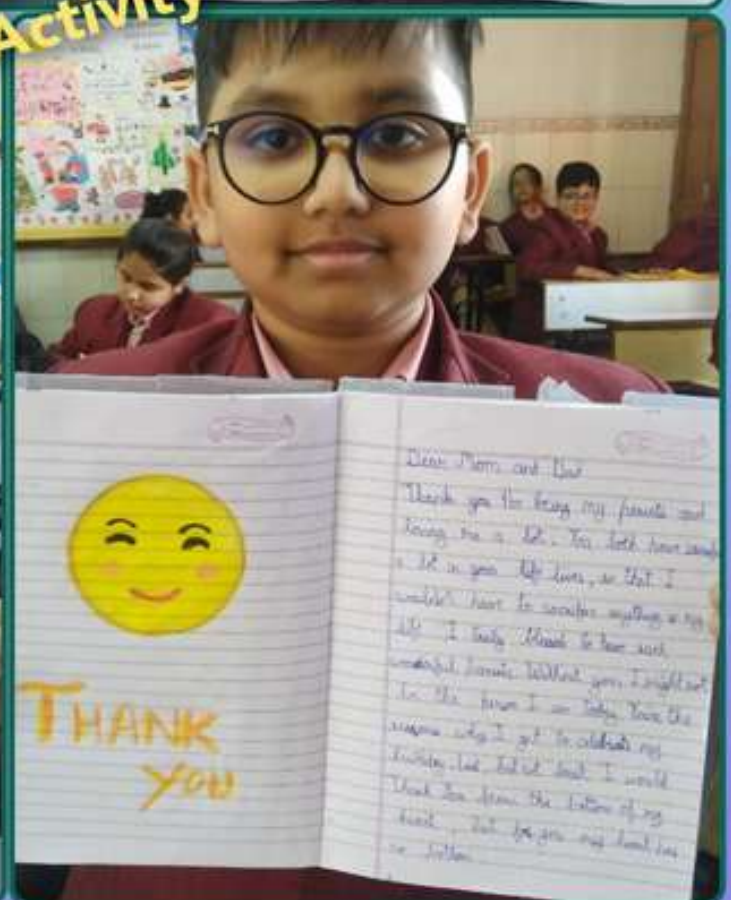 Activity
THANK
YOU
Dear Mom and Dad
Thank you for being my parents and
loving me a lot. You both have
a lot in your life lives, so that I
wouldn't have to sacrifice anything in my
life. I truly blessed to have such
wonderful parents. Without you, I might not
be the person I am today. You're the
reason why I get to celebrate my
birthday. Last, but not least I would
thank you from the bottom of my
heart, but for you my heart has
no bottom